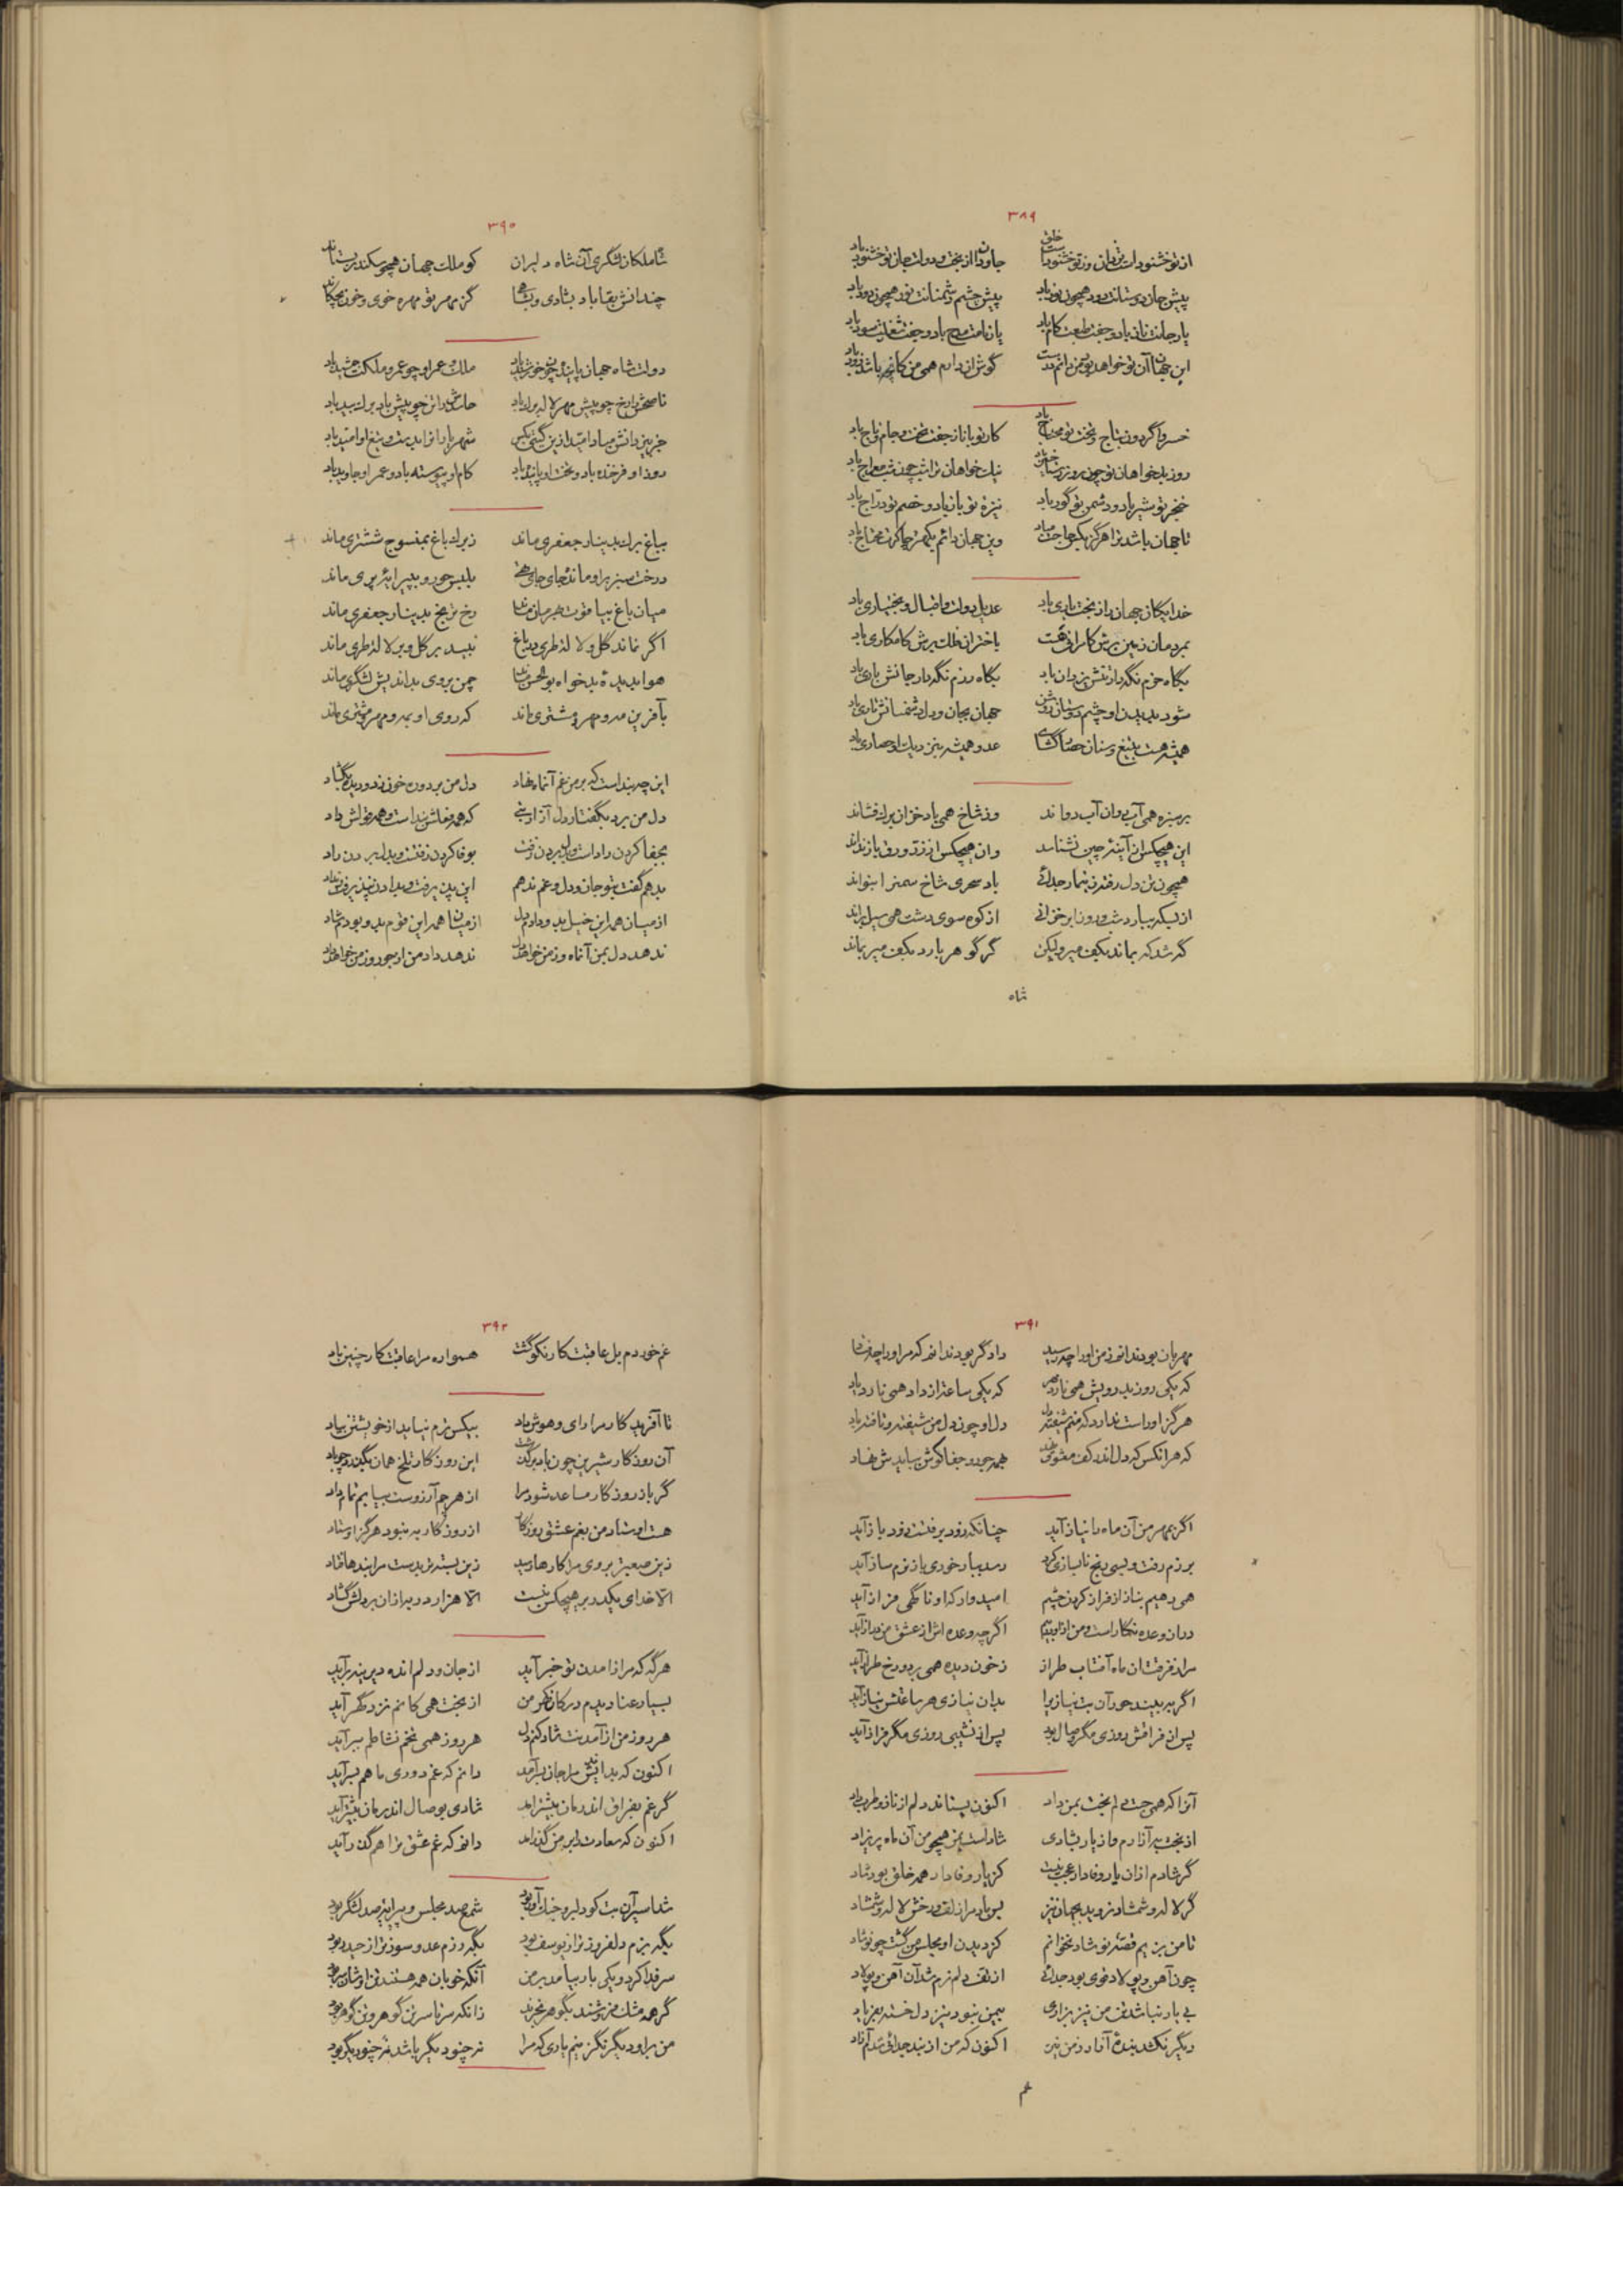 ۳۸۹
از تو خشنودست یزدان وز تو خشنودست خلق جاودان از بخت و دولت جان تو خشنود باد
پیش جان دوستانت دود همچون نور باد پیش چشم دشمنانت نور همچون دود باد
یار جانت ناز باد و جفت طبعت کام باد یار نامت مدح باد و جفت شغلت سود باد
این جهان آن تو خواهد بود من دانم درست گوش ازان دارم همی من کانچه باشد زود باد
خسروا گردون بتاج و تخت تو محتاج باد کار تو با ناز جفت تخت و جام و تاج باد
روز بدخواهان تو چون روز رستاخیز باد نیک خواهان ترا شب چون شب معراج باد
خنجر تو شیر باد و دشمن تو گور باد نیزه تو باز باد و خصم تو دراج باد
تا جهان باشد ترا هرگز بکس حاجت مباد وین جهان دائم بکمتر چاکرت محتاج باد
خدایگان جهان را ز بخت یاری باد عدیل دولت و اقبال و بختیاری باد
بمردمان زمین برش کامرانی هست باختران فلک برش کامکاری باد
بگاه حزم نگهدار تنش یزدان باد بگاه رزم نگهدار جانش باری باد
شود بدیدن او چشم دوستان روشن جهان بجان و دل دشمنانش تاری باد
همیشه هست بتیغ و سنان حصار گشای عدو همیشه بنزدیک او حصاری باد
بر سبزه همی آب روان آب دواند وز شاخ همی باد خزان برگ فشاند
این هیچکس از آینه چین نشناسد وان هیچکس از زر و ورق باز نداند
همچون تن دل رفته ز تیمار جدائی باد سحری شاخ سمن را بنواند
از بس که ببارد شب و روز ابر خزانی از کوه سوی دشت همی سیل براند
گه شد که بماند بکف میر ولیکن گر گوهر بارد بکف میر بماند
شاه
۳۹۰
شاه ملکان لشگری آن شاه دلیران کو ملک جهان همچو سکندر بستاند
چندانش بقا باد بشادی و بشاهی کز مهر تو مهره خوی و خون بچکاند
دولت شاه جهان پاینده چون خورشید باد ملک و عمر او چو عمر و ملکت جمشید باد
ناصحش را رخ چو پیش مهر لاله برگ باد حاسدش را تن چو پیش باد برگ بید باد
جز بیزدانش مبادا امید ازین گیتی بکس شهریاران را بدست و تیغ او امید باد
روز او فرخنده باد و بخت او پاینده باد کام او پیوسته باد و عمر او جاوید باد
بباغ برگ بدینار جعفری ماند زبرگ باغ بمنسوج ششتری ماند
درخت سبز بر او مانده جای جای تهی بلبس حور و بپیرایه پری ماند
میان باغ بیاقوت بهرمان ماند رخ ترنج بدینار جعفری ماند
اگر نماند گل و لاله طری در باغ نبید بر گل و بر لاله طری ماند
هوا بدیده بدخواه بوالحسن ماند چمن بروی بداندیش لشگری ماند
بآفرین مه و مهر و مشتری ماند که روی او بمه و مهر و مشتری ماند
این چه بندست که بر من غم آنماه نهاد دل من برد و ره خون ز دو دیده بگشاد
دل من برد بگفتار دل آزار بتی که همه فعلش بندست و همه قولش داد
بجفا کردن داد است و دل بردن زفت بوفا کردن زفتست و بدل بردن راد
بدهم گفت بتو جان و دل و غم ندهم این بپذیرفت و بداد آن نپذیرفت و نداد
از میان همه این خیل بدو دادم دل از میان همه این قوم بدو بودم شاد
ندهد دل بمن آنماه و ز من خواهد دل ندهد داد من از جور و ز من خواهد داد
۳۹۱
مهربان بودند از من او را چه رسید دادگر بود ندانم که مر او را چه فتاد
که یکی روز بدرویش همی نارد مهر که یکی ساعت از داد همی نارد یاد
هرگز او راست ندارد که منم شیفته دل دل او چون دل من شیفته و تافته باد
که هر انکس که دل اندر کف معشوق نهد همه جور و جفا گوش ببایدش نهاد
اگر بمهر من آن ماه را نیاز آید چنانکه زود برفتست زود باز آید
برزم رفت و بسی رنج ناسازی کرد رسید بار خوری باز بزم ساز آید
همی دهیم بناز از فراز کردن چشم امیدوار که او ناگهی فراز آید
دران وعده نگار است و من از او بیم اگرچه وعده اش از عشق من دراز آید
مرا ز فرقت آن ماه آفتاب طراز ز خون دیده همی بر دو رخ طراز آید
اگر ببیند حور آن بت نیازی را بدان نیازی هر ساعتش نیاز آید
پس از فراقش روزی مگر وصال بود پس از نشیبی روزی مگر فراز آید
آنرا که همی جست دلم بخت بمن داد اکنون بستاند دلم از ناز و طرب داد
از بخت بر آزارم و از یار بشادی شاد است بمن همچو من آن ماه پریزاد
گر شادم ازان یار وفادار عجب نیست کز یار وفادار همه خلق بود شاد
گر لاله و شمشاد نروید بجهان نیز بس باد مرا زلف و رخش لاله و شمشاد
تا من بزیم قصه نوشاد نخوانم کز دیدن او مجلس من گشت چو نوشاد
چون آهن و پولاد قوی بود جدائی از تف دلم نرم شد آن آهن و پولاد
بی یار نباشد تن من نیز بزاری بیمن نبود نیز دل خسته بفریاد
دیگر نکند بنده آزاد ز من نیز اکنون که من از بند جدائی شدم آزاد
غم
۳۹۲
غم خوردم بل عاقبت کار نکو گشت همواره مرا عاقبت کار چنین باد
تا آفریدگار مرا رای و هوش داد بیکس ترم نیاید از خویشتن بیاد
آن روزگار شیرین چون باد برگذشت این روزگار تلخ همان بگذرد چو باد
گر باز روزگار مساعد شود مرا از هرچم آرزوست بیابم تمام داد
هست اوستاد من بغم عشق روزگار از روزگار به نبود هرگز اوستاد
زین صعبتر بروی مرا کارها رسید زین بسته تر بدست مرا بندها فتاد
الا خدای یکدر بر هیچکس نبست الا هزار در به ازان بر دلش گشاد
هرگه که مرا ز آمدن تو خبر آید از جان و دلم انده دیرینه برآید
بسیار عنا دیدم در کار تو من از بخت همی کامم نزد دگر آید
هر روز من از آمدنت شاد کنم دل هر روز همی نخم نشاطم ببر آید
اکنون که بدانش مرا جان بسر آمد دانم که غم دوری ما هم بسر آید
گر غم بفراق اندرمان پیشتر آمد شادی بوصال اندرمان بیشتر آید
اکنون که سعادت بر من گذر آمد دانم که غم عشق ترا هم گذر آید
شد اسیر آن بت کو دلبر و جنگ آور بود شمع صد مجلس و پیرایه صد لشگر بود
بگه بزم دلفروز تر از یوسف بود بگه رزم عدو سوزتر از حیدر بود
سر فدا کرد و یکی بار بیامد بر من آنکه خوبان همه هستند تن او شان سر بود
گر همه مشک فروشند بگوهر نخرند زانکه سر تا سر تن گوهر و تن گوهر بود
من برا و دیگر نگزینم یاری که مرا نه چنو دیگر باشد نه چنو دیگر بود